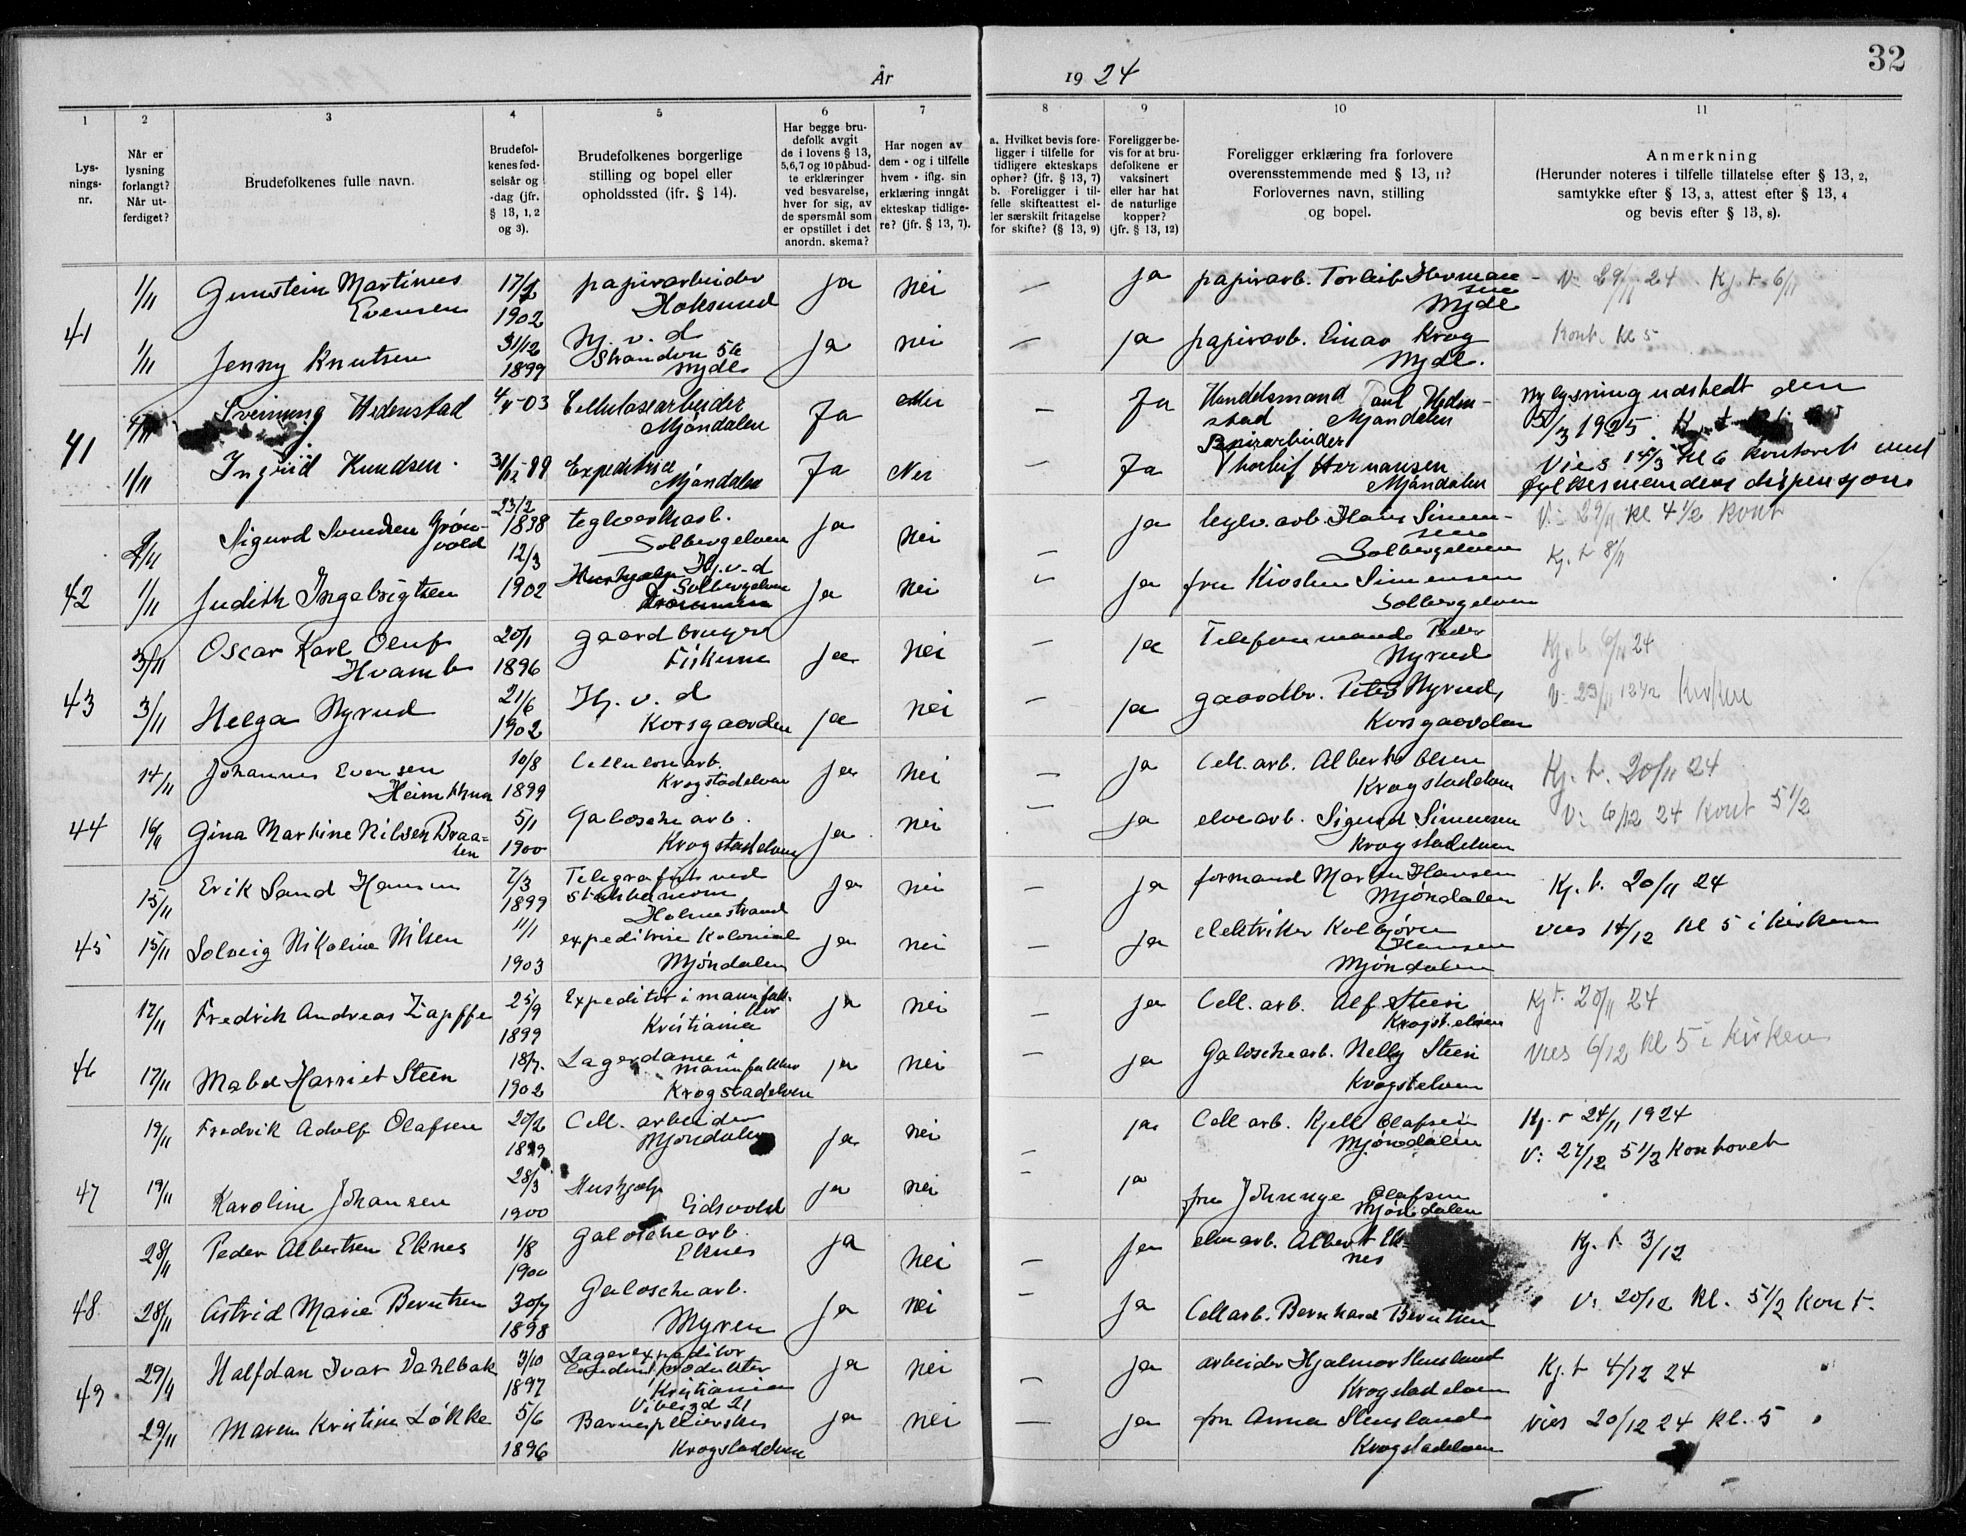 32
År 1924
1 2 3 4 5 6 7 8 9 10 11
Lys-
nings-
nr.
Når er
lysning
forlangt?
Når ut-
ferdiget?
Brudefolkenes fulle navn.
Brudefol-
kenes fød-
selsår og
-dag (jfr.
§ 13, 1, 2
og 3).
Brudefolkenes borgerlige
stilling og bopel eller
opholdssted (jfr. § 14).
Har begge bru-
defolk avgit
de i lovens § 13,
5,6,7 og 10 påbud-
te erklæringer
ved besvarelse,
hver for sig, av
de spørsmål som
er opstillet i det
anordn. skema?
Har nogen av
dem - og i tilfelle
hvem - iflg. sin
erklæring inngått
ekteskap tidlige-
re? (jfr. § 13, 7).
a. Hvilket bevis fore-
ligger i tilfelle for
tidligere ekteskaps
ophør? (jfr. § 13, 7)
b. Foreligger i til-
felle skifteattest el-
ler særskilt fritagelse
for skifte? (§ 13, 9)
Foreligger be-
vis for at bru-
defolkene er
vaksinert
eller har hat
de naturlige
kopper?
(jfr. § 13, 12)
Foreligger erklæring fra forlovere
overensstemmende med § 13, 11?
Forlovernes navn, stilling
og bopel.
Anmerkning
(Herunder noteres i tilfelle tillatelse efter § 13, 2,
samtykke efter § 13, 3, attest efter § 13, 4
og bevis efter § 13, 8).
41
1/11 Gunstein Martinus Evensen 1902 papirarbeider Hoksund ja nei — ja papirarb. Torleif Hermansen Mjdl V. 29/11 24 Kj. t. 6/11
1/11 Jenny Knutsen 31/12 1899 Hj. v. d Strandvn 56 Mjdl ja nei — ja papirarb. Einar Krog Mjdl. Kont. kl 5
41
Sveinung Hedenstad 03 Cellulosearbeider Mjøndalen Ja Nei — Ja Handelsmand Paul Hedenstad Mjøndalen Ny lysning udstedt den 5/3 1925.
1/11 Ingrid Knudsen 31/12 99 Expeditrice Mjøndalen Ja Nei — Ja Papirarbeider Thorleif Hermansen Mjøndalen Vies 14/3 kl 6 kontoret med fylkesmandens dispensjon.
42
Sigurd Svendsen Grønvold 23/2 1898 teglverksarb. Solbergelven ja nei — ja teglv. arb. Hans Simensen Solbergelven V. 29/11 kl 4 1/2 kont
1/11 Judith Ingebrigtsen 12/3 1902 Hushjælp Hj. v. d Solbergelven Drammen ja nei — ja fru Kirsten Simensen Solbergelven Kj. t 8/11
43
3/11 Oscar Karl Oluf Hvamb 20/1 1896 gaardbruger Fiskum ja nei — ja Telefonmand Peder Nyrud Kj. t. 6/11 24
3/11 Helga Nyrud 21/6 1902 Hj. v. d Korsgaarden ja nei — ja gaardbr. Peter Nyrud, Korsgaarden V. 23/11 12 1/2 kirken
44
14/11 Johannes Evensen 10/8 1899 Cellulosearb. Krogstadelven ja nei — ja Cell. arb. Albert Olsen Krogstadelven Kj. t. 20/11 24
16/11 Gina Martine Nilsen Braaten 5/1 1900 Galoschearb. Krogstadelven ja nei — ja elvearb. Sigurd Simensen Krogstadelven V. 6/12 24 kont 5 1/2
45
15/11 Erik Sand Hansen 7/3 1899 Telegrafist ved Statsbanerne Holmestrand ja nei — ja formand Martin Hansen Mjøndalen Kj. t. 20/11 24
15/11 Solveig Nikoline Nilsen 11/1 1903 expeditrise Kolonial Mjøndalen ja nei — ja elektriker Kolbjørn Hansen Mjøndalen vies 14/12 kl 5 i kirken
46
17/11 Fredrik Andreas Zapffe 25/9 1899 Expeditør i manufaktur Kristiania ja nei — ja Cell. arb. Alf Steen Krogst.elven Kj t. 20/11 24
17/11 Mabel Harriet Steen 18/7. 1902 Lagerdame i manufaktur Krogstadelven ja nei — ja Galoschearb. Nelly Steen Krogstelven vies 6/12 kl 5 i kirken
47
19/11 Fredrik Adolf Olafsen 20/2 1899 Cell. arbeider Mjøndalen ja nei — ja Cell arb. Kjell Olafsen Mjøndalen Kj. t 24/11 1924
19/11 Karoline Johansen 28/3 1900 Hushjælp Eidsvold ja nei — ja fru Olafsen Mjøndalen V: 27/12 5 1/2 kontoret
48
28/11 Peder Albertsen Eknes 1/8 1900 Galoschearb. Eknes ja nei — ja elvearb. Albert Eknes Kj. t. 3/12
28/11 Astrid Marie Berntsen 30/7 1898 Galoschearb. Myren ja nei — ja Cellarb. Bernhard Berntsen V. 20/12 kl. 5 1/2 kont.
49
29/11 Halfdan Ivar Dahlbak 3/10 1897 Lagerexpeditør Kristiania ja nei — ja arbeider Hjalmar Stensland Krogstadelven Kj. t 4/12 24
29/11 Maren Kristine Løkke 5/6 1896 Barnepleierske Krogstadelven ja nei — ja fru Anna Stensland Krogstadelven vies 20/12 24 kl. 5